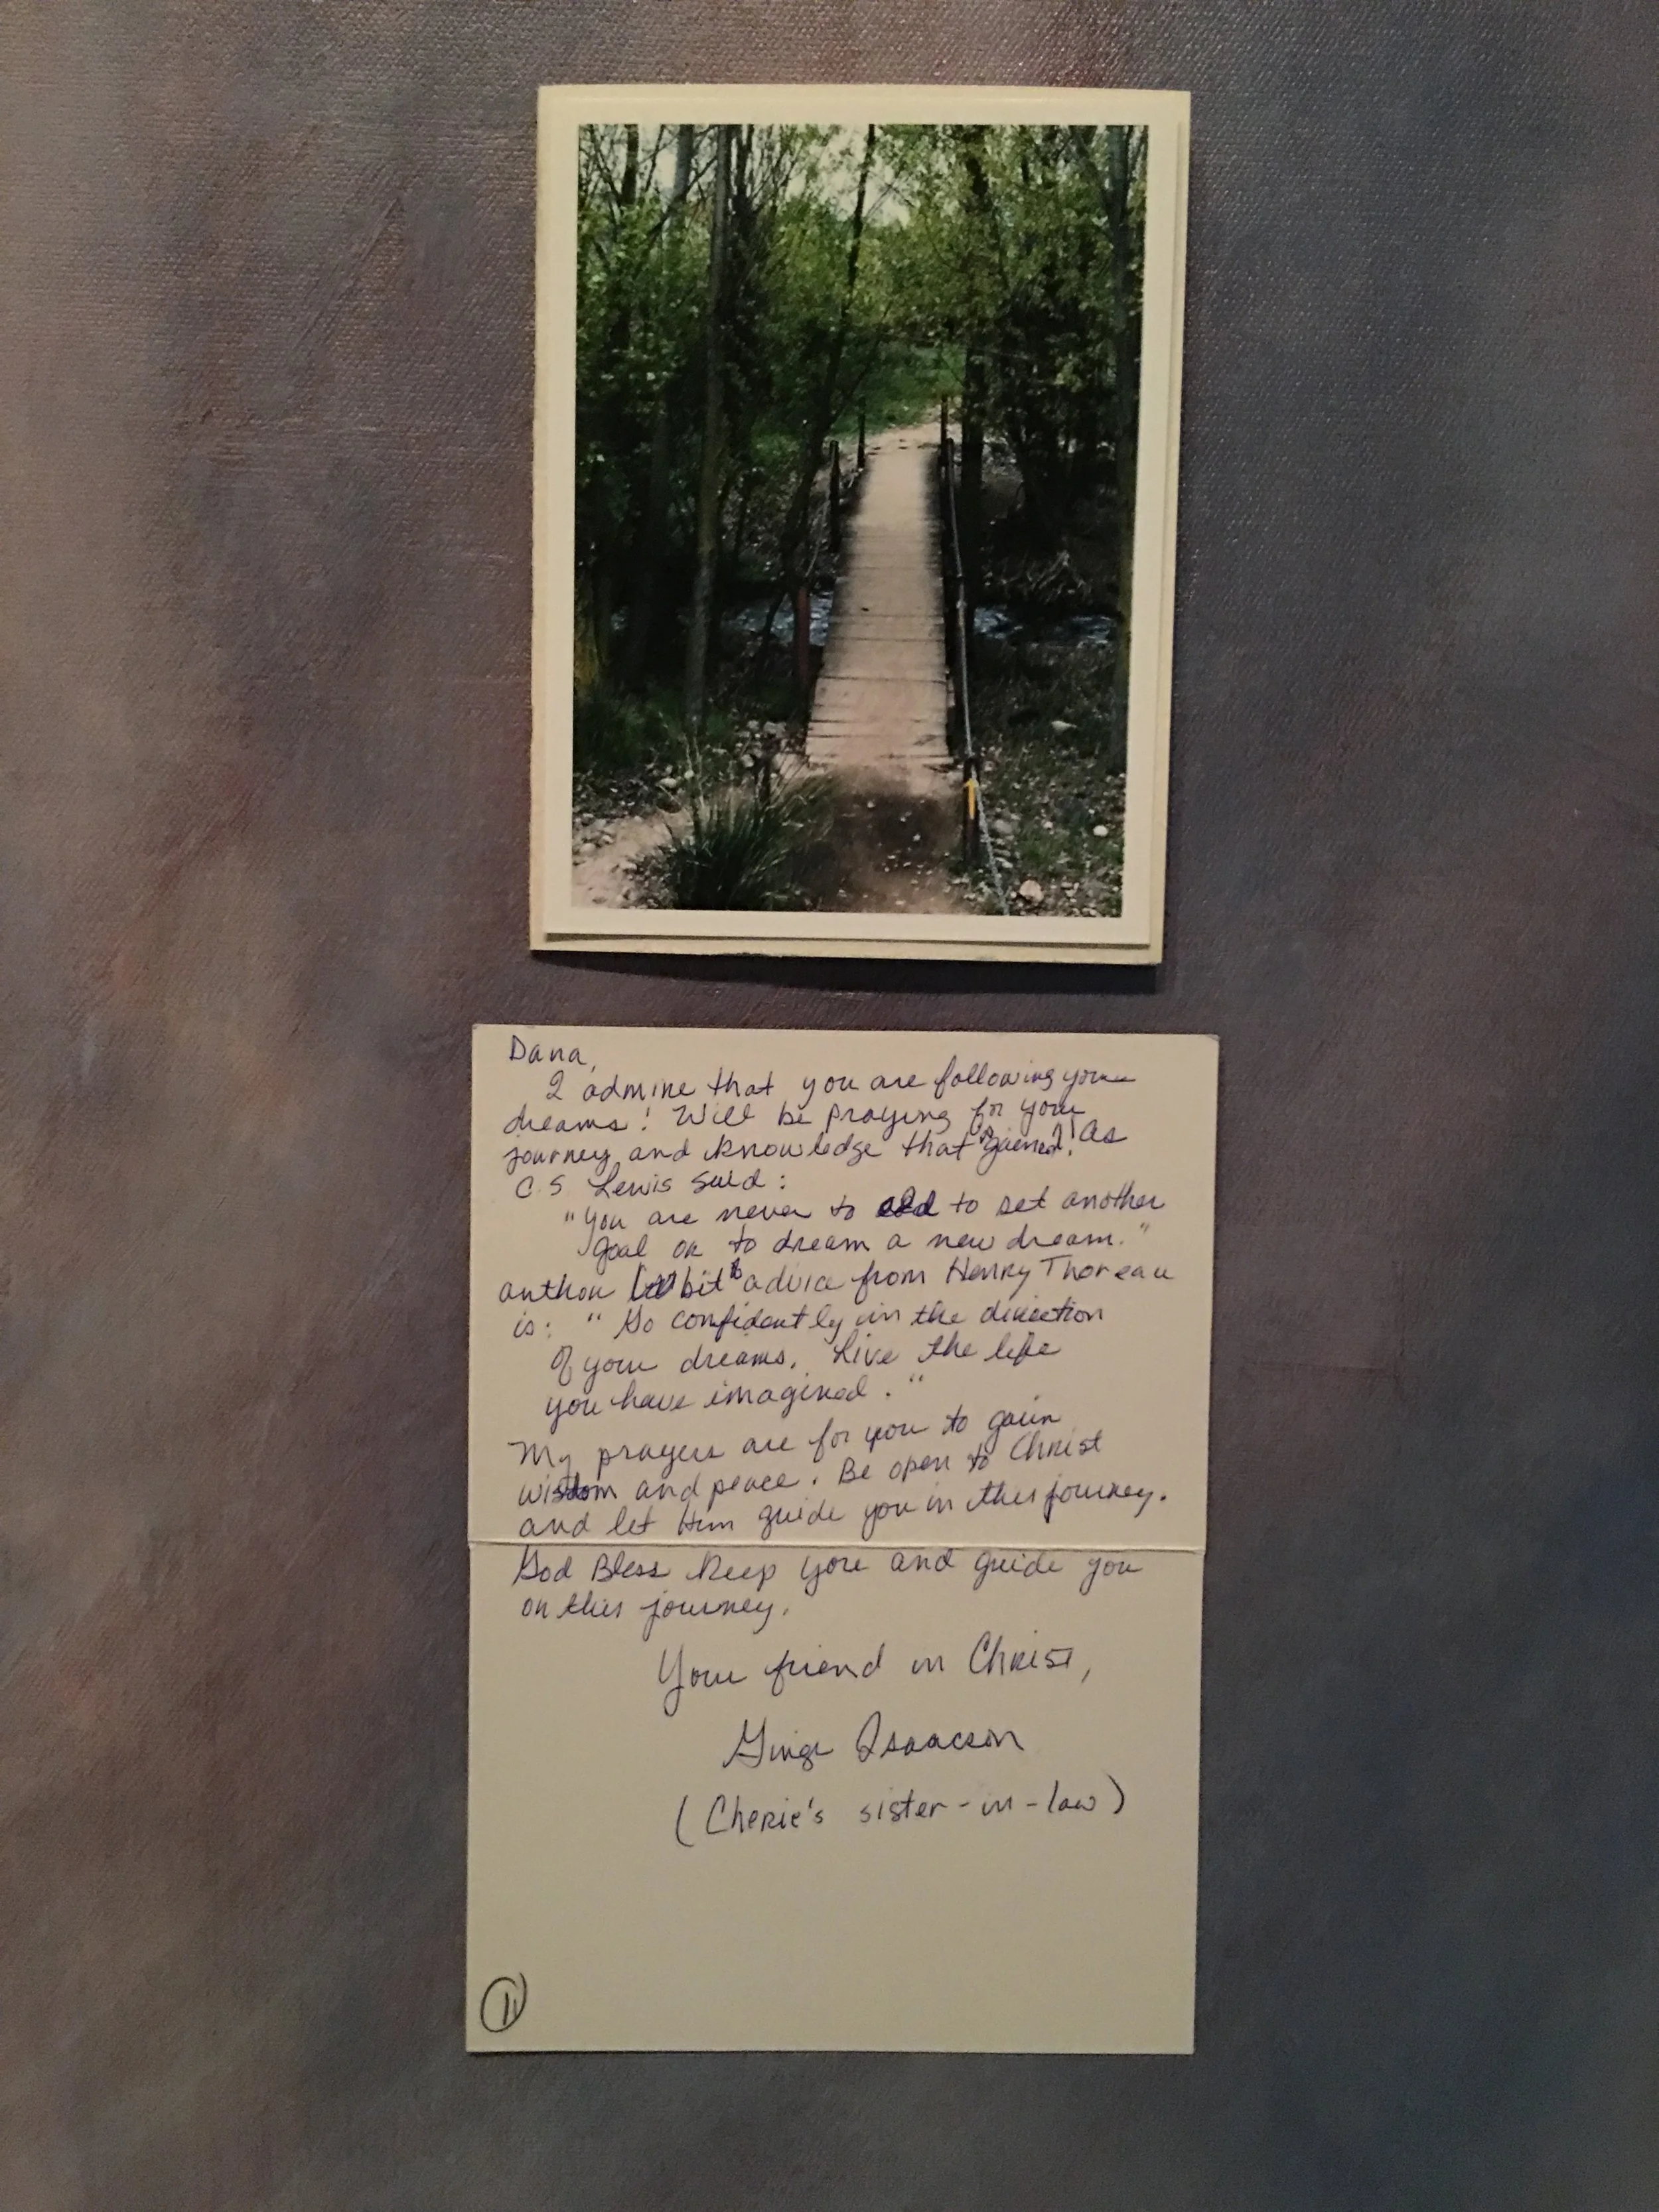 Dana,
I admire that you are following your
dreams! Will be praying for your
journey and knowledge that is gained! As
C.S Lewis said:
"You are never to old to set another
goal or to dream a new dream."
anthor bit advice from Henry Thoreau
is: "Go confidently in the direction
of your dreams. Live the life
you have imagined."
My prayers are for you to gain
wisdom and peace. Be open to Christ
and let Him guide you in this journey.
God Bless Keep you and guide you
on this journey.
Your friend in Christ,
Isaacson
(Cherie's sister-in-law)